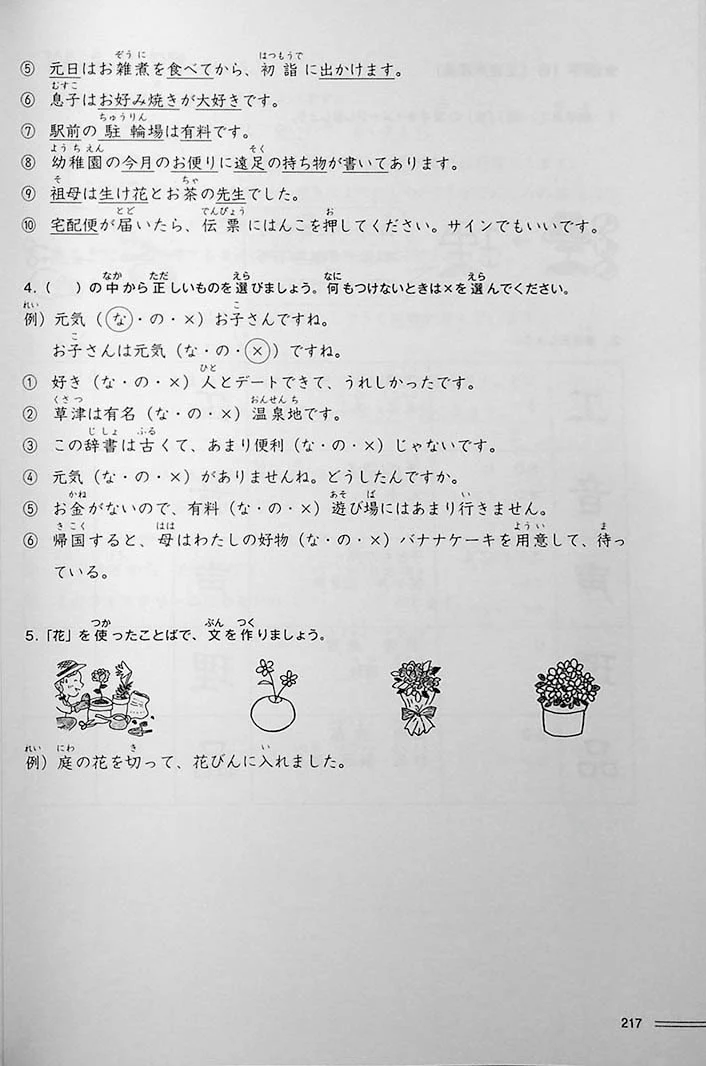 ⑤ 元日はお雑煮を食べてから、初詣に出かけます。
⑥ 息子はお好み焼きが大好きです。
⑦ 駅前の駐輪場は有料です。
⑧ 幼稚園の今月のお便りに遠足の持ち物が書いてあります。
⑨ 祖母は生け花とお茶の先生でした。
⑩ 宅配便が届いたら、伝票にはんこを押してください。サインでもいいです。
4.(　)の中から正しいものを選びましょう。何もつけないときは×を選んでください。
例）元気（な・の・×）お子さんですね。
お子さんは元気（な・の・×）ですね。
① 好き（な・の・×）人とデートできて、うれしかったです。
② 草津は有名（な・の・×）温泉地です。
③ この辞書は古くて、あまり便利（な・の・×）じゃないです。
④ 元気（な・の・×）がありませんね。どうしたんですか。
⑤ お金がないので、有料（な・の・×）遊び場にはあまり行きません。
⑥ 帰国すると、母はわたしの好物（な・の・×）バナナケーキを用意して、待っ
ている。
5.「花」を使ったことばで、文を作りましょう。
例）庭の花を切って、花びんに入れました。
217